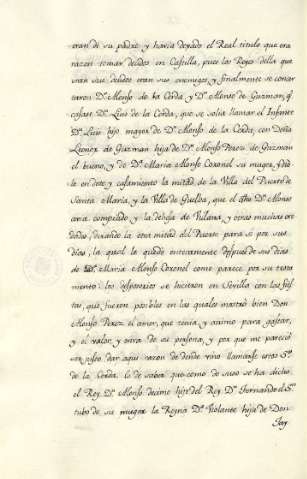 eran de su padre y havia dexado el Real titulo que era
razon tomar deudos en Castilla, pues los Reyes della que
eran sus deudos eran sus enemigos, y finalmente se concer
taron Dn. Alonso de la Cerda y Dn. Alonso de Guzman, q.
casase Dn. Luis de la Cerda, que se solia llamar el Infante
Dn. Luis hijo mayor de Dn. Alonso de la Cerda, con Doña
Leonor de Guzman hija de Dn. Alonso Perez de Guzman
el bueno, y de Da. Maria Alonso Coronel su muger, y dió
le en dote y casamiento la mitad de la Villa del Puerto de
Santa Maria, y la Villa de Huelba, que el año Dn. Alonso
avia comprado y la dehesa de Villana, y otros muchos ere
dades, dexando la otra mitad del Puerto para si por sus
dias, la qual le quedó enteramente despues de sus dias
de Da. Maria Alonso Coronel como parece por su testa
mento: los desposorios se hicieron en Sevilla con las fies
tas, que fueron posibles en las quales mostró bien Don
Alonso Perez el amor, que tenia, y animo para gastar,
y el valor y de su persona, y por que me pareció
ser justo dar aqui razon de donde vino llamarse estos Ss.
de la Cerda. Es de saber que como de suso se ha dicho
el Rey Dn. Alonso decimo hijo del Rey Dn. Fernando el Sto.
tubo de su muger la Reyna Da. Violante hija de Don
Jay